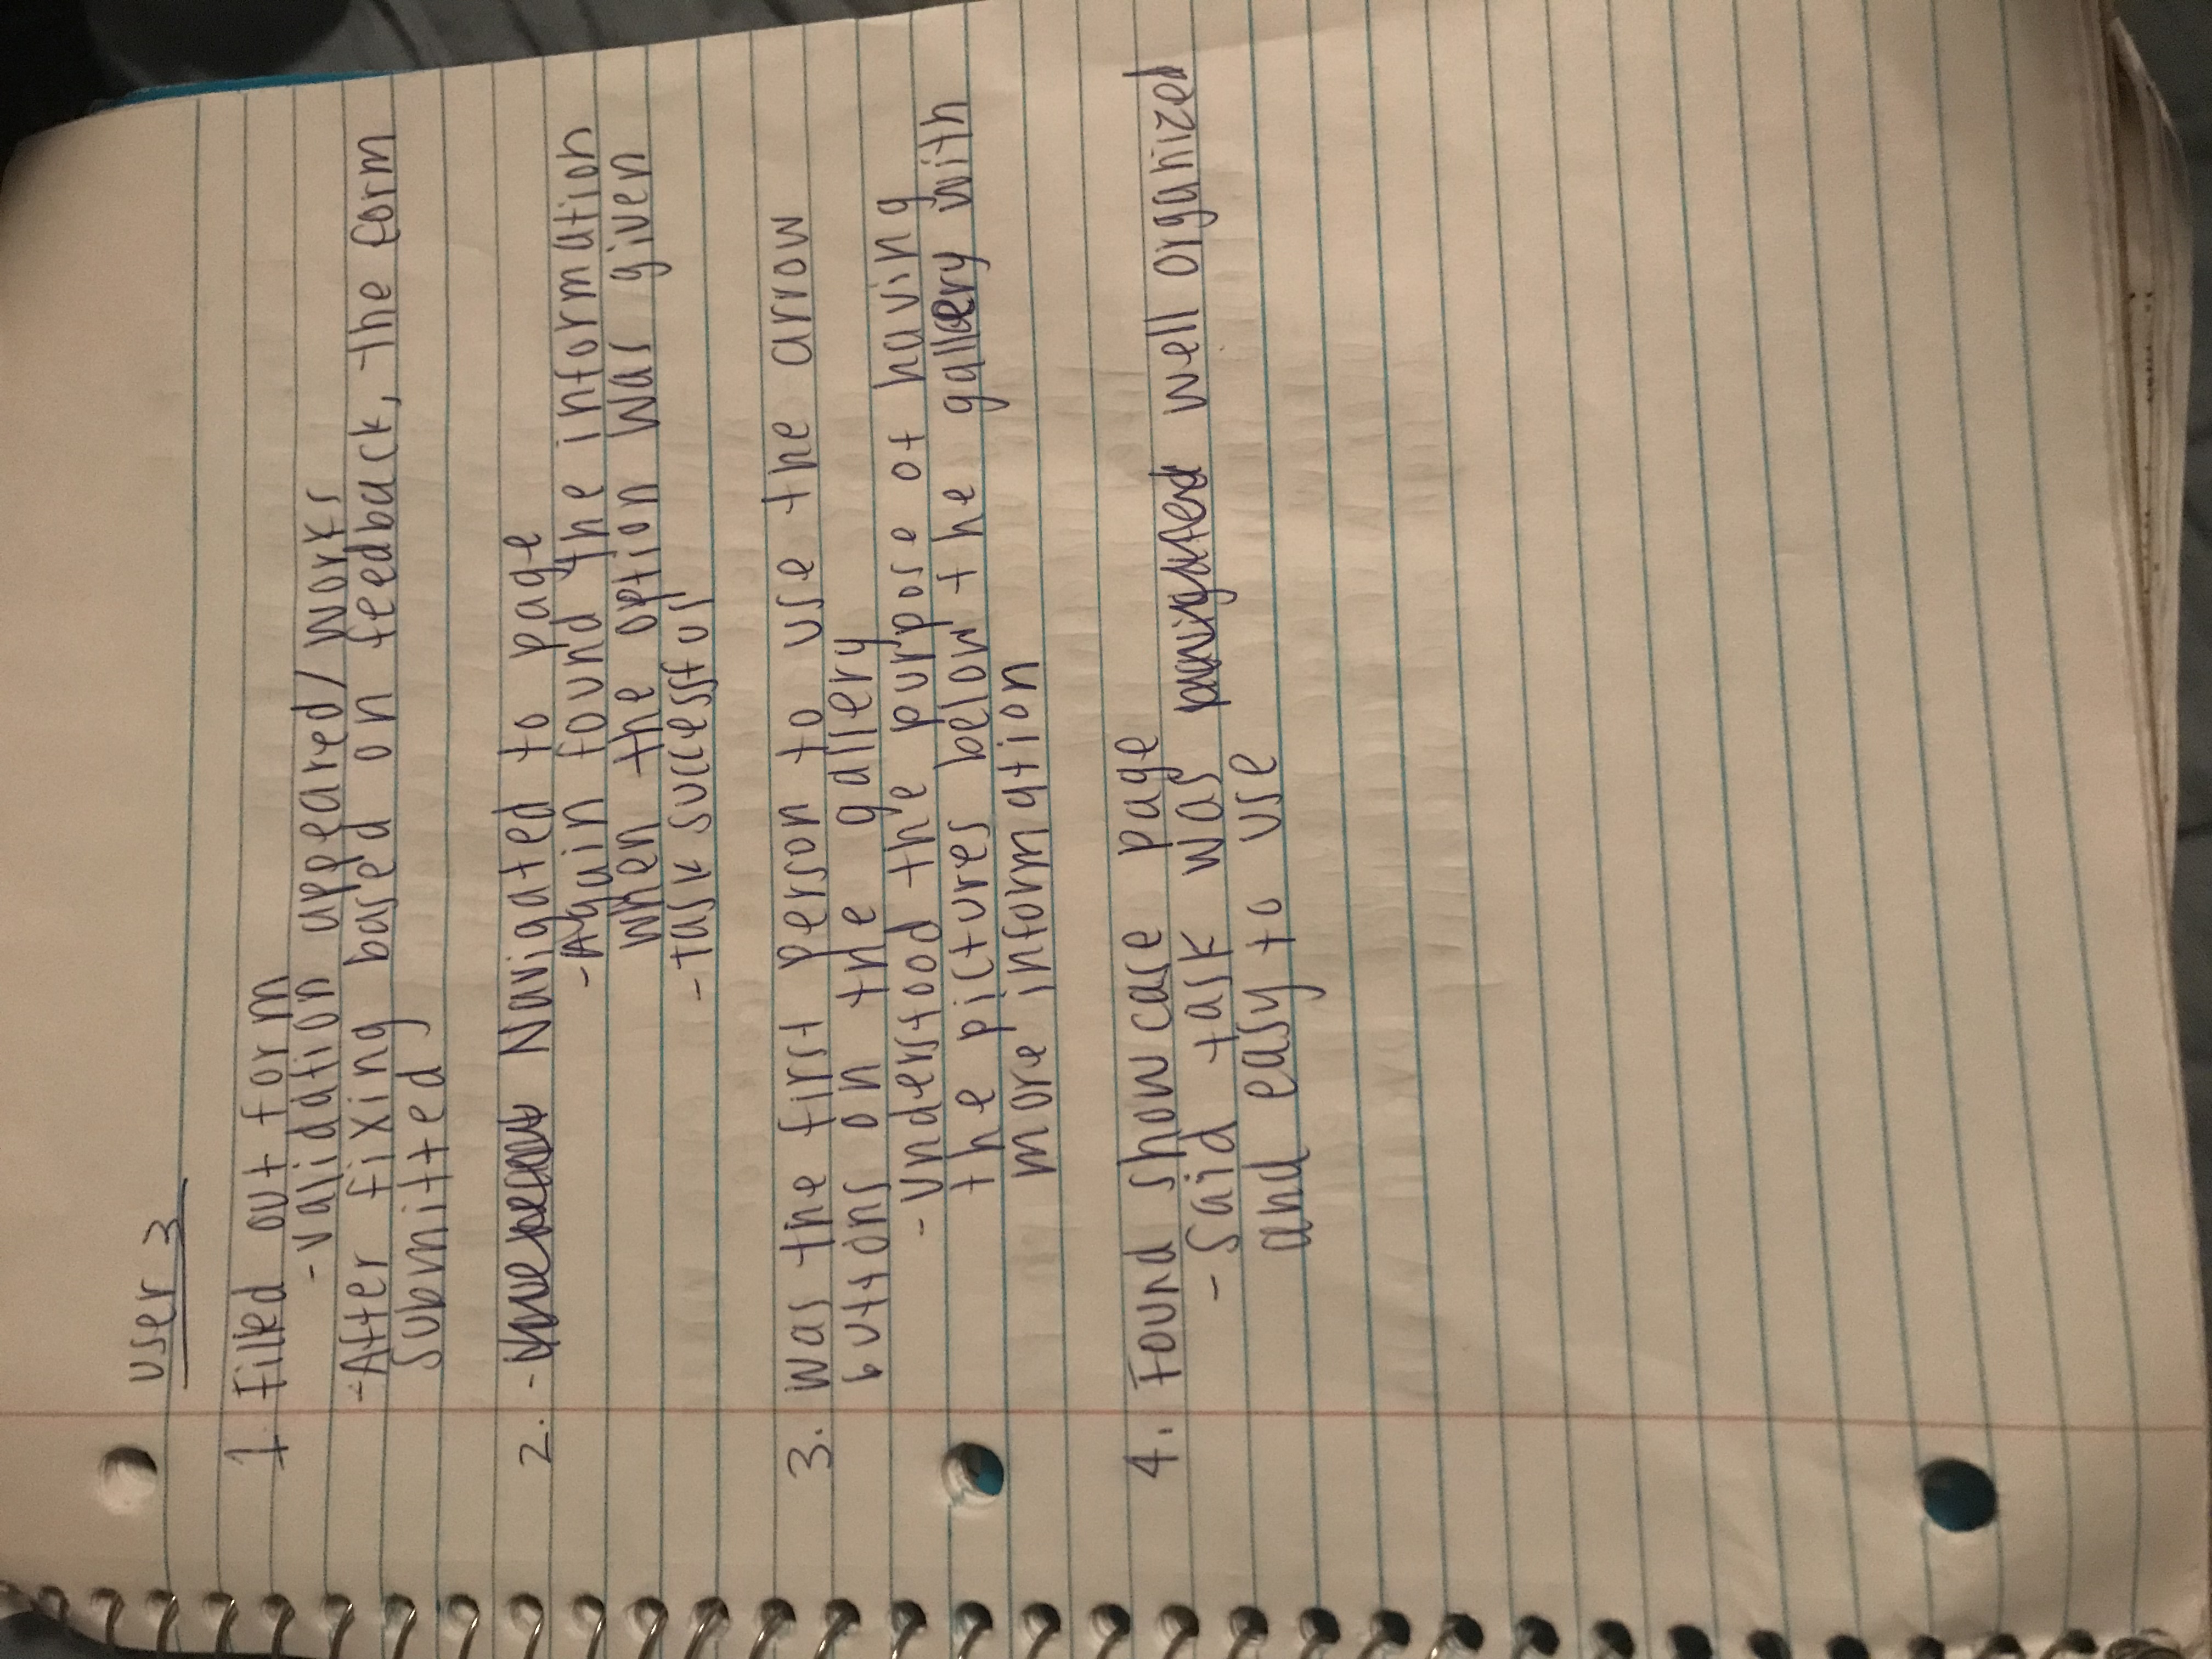 User 3
1 Filled out form
-validation appeared/works
-After fixing based on feedback, the form
submitted
2. - Navigated to page
-Again found the information
when the option was given
-Task successful
3. Was the first person to use the arrow
buttons on the gallery
-Understood the purpose of having
the pictures below the gallery with
more information
4. Found showcase page
-Said task was navigated well organized
and easy to use